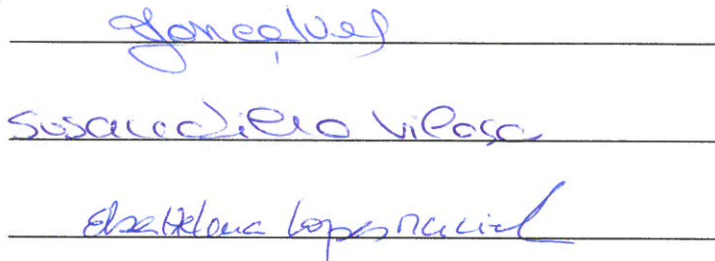 Gonçalves
Susana Vilaça
Elsa Helena Lopes Maciel